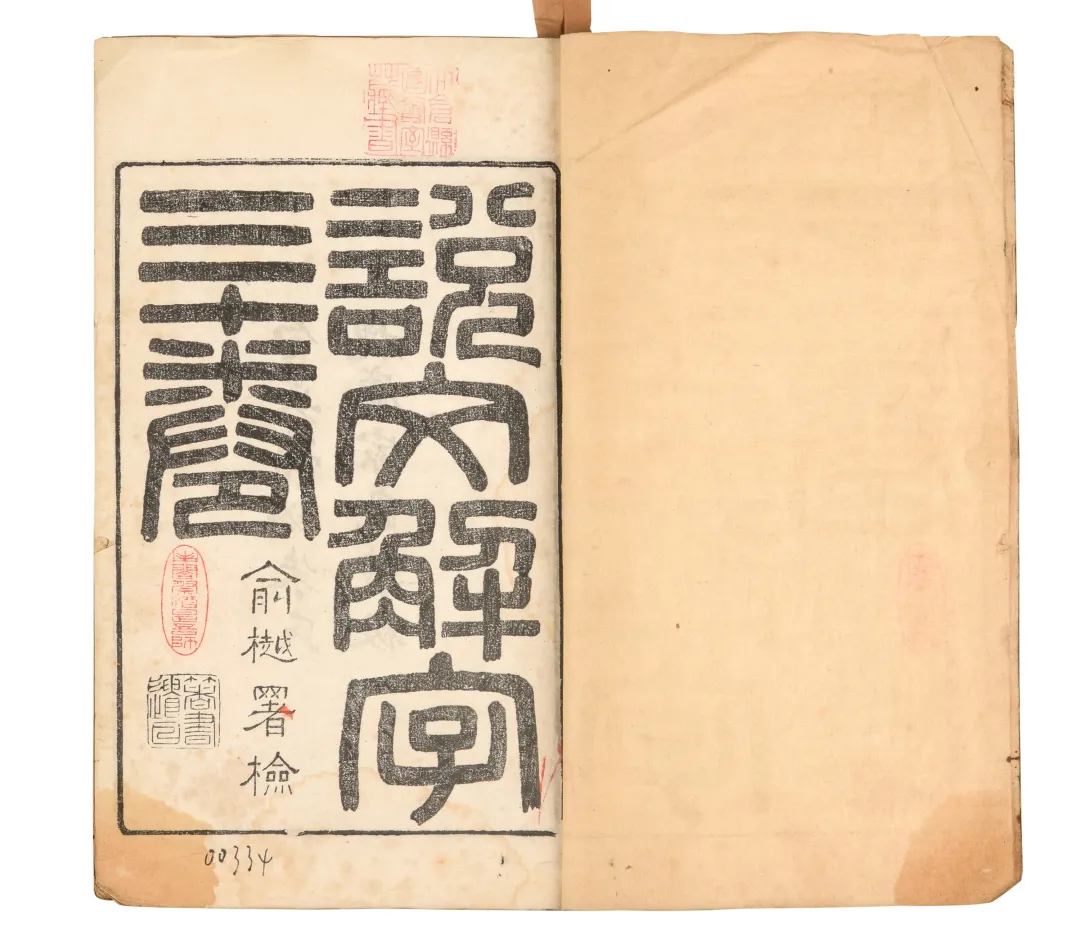 說文解字
三十卷
俞樾署檢
00334